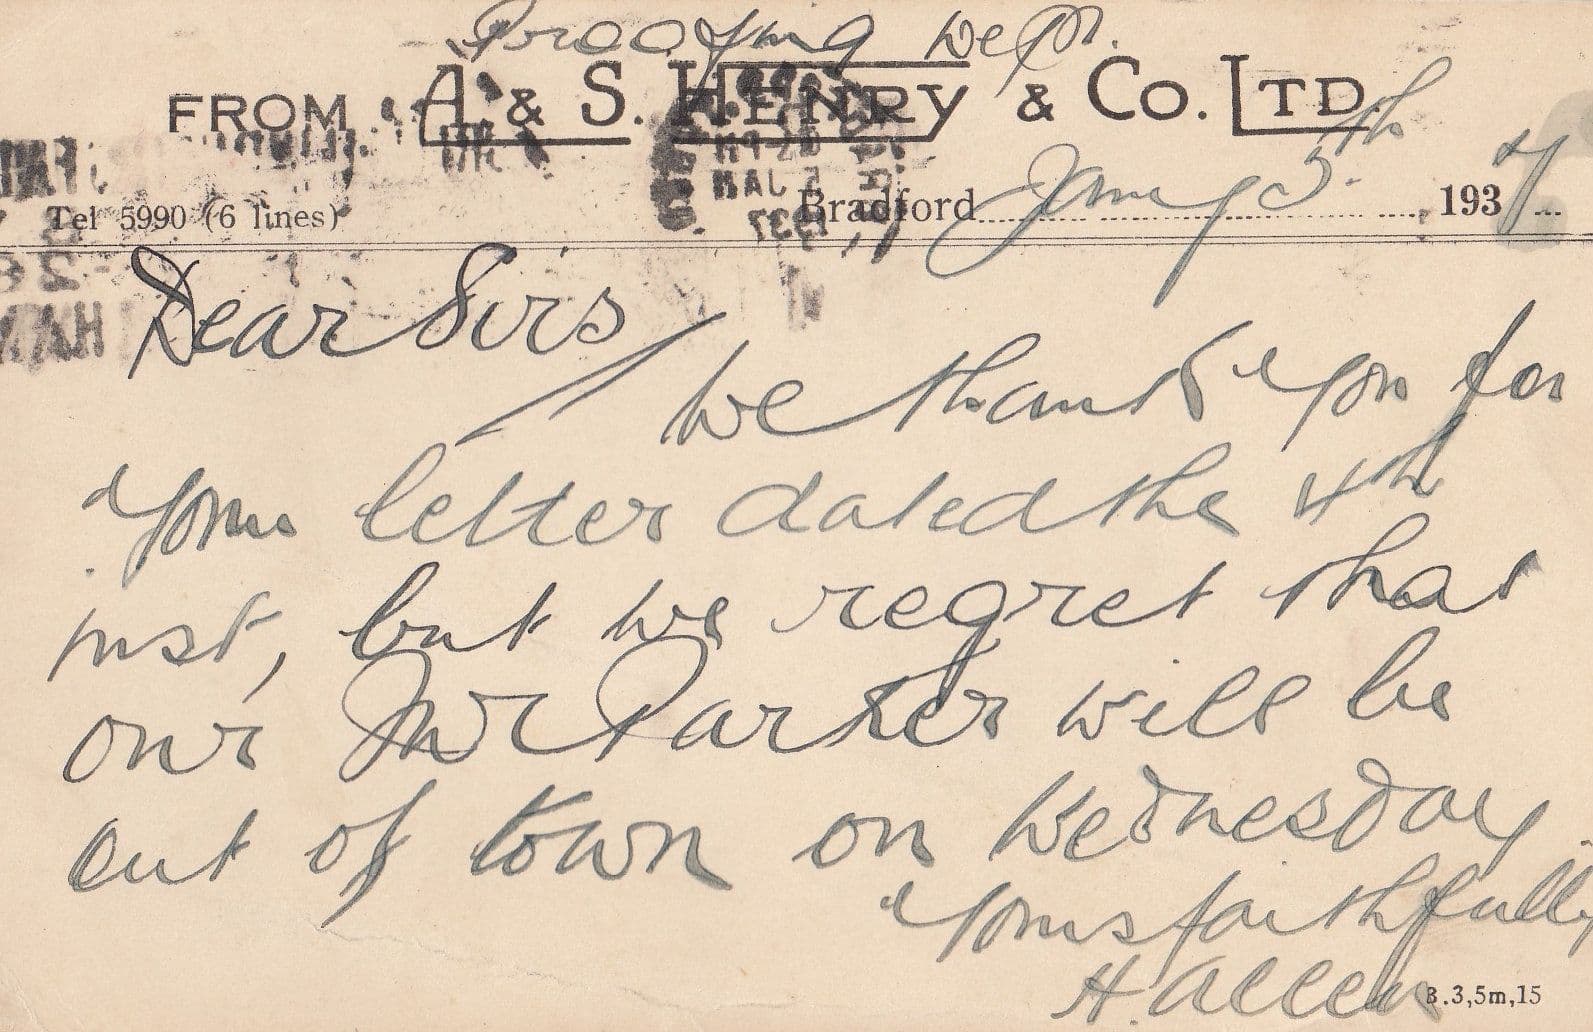 Proofing Dept.
FROM A. & S. HENRY & CO. LTD.
Tel 5990 (6 lines) Bradford Jany 5th 1937
Dear Sirs
We thank you for
your letter dated the 4th
inst, but we regret that
our Mr Parker will be
out of town on Wednesday
Yours faithfully
H. Allen
B.3,5m,15